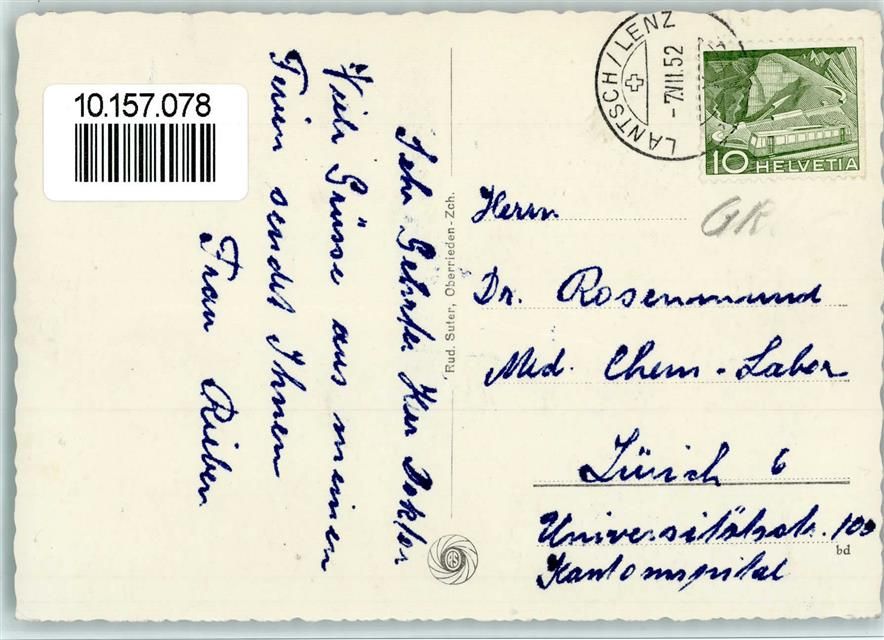 10.157.078
LANTSCH/LENZ
-7.VII.52
10 HELVETIA
GR.
Sehr Gehrter Herr Doktor
Viele Grüsse aus meinen
Ferien sendet Ihnen
Frau Rieben
Rud. Suter, Oberrieden-Zch.
Herrn
Dr. Rosenmund
Med. Chem-Labor
Zürich 6
Universitätsstr. 100
Kantonspital
bd